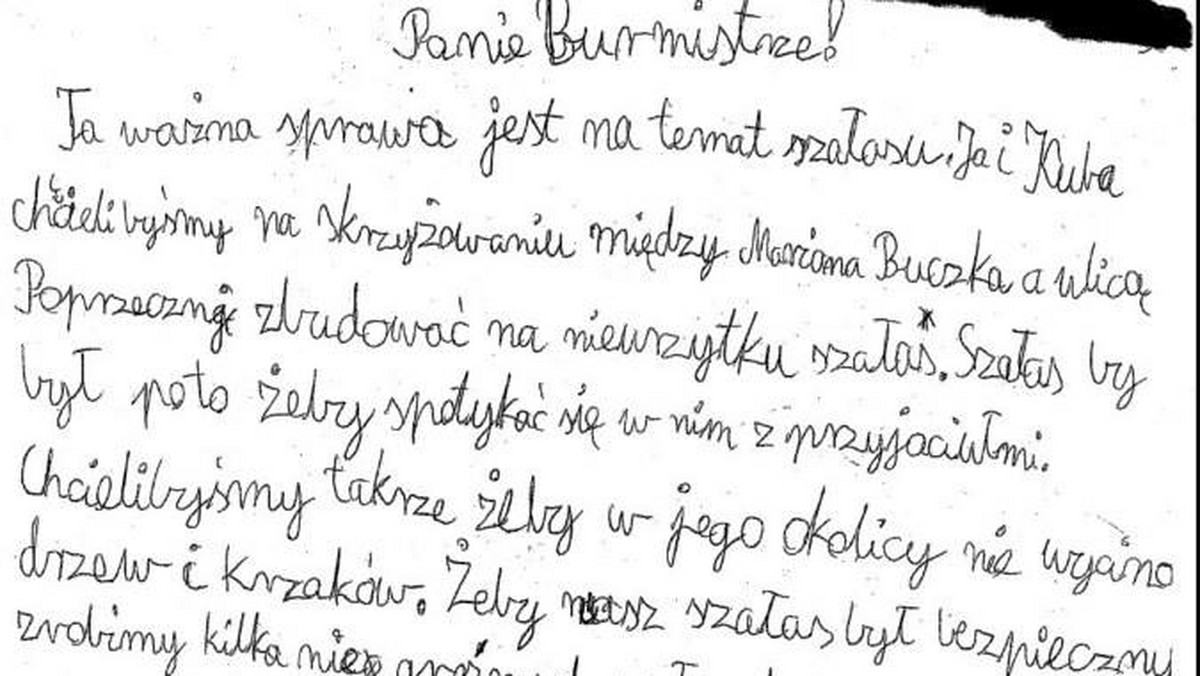 Panie Burmistrze!
Ta ważna sprawa jest na temat szałasu. Ja i Kuba
chcielibyśmy na skrzyżowaniu między Mariana Buczka a ulicą
Poprzeczną zbudować na nieurzytku szałas. Szałas by
był poto żeby spotykać się w nim z przyjaciułmi.
Chcielibyśmy takrze żeby w jego okolicy nie wycino
drzew i krzaków. Żeby nasz szałas był bezpieczny
zrobimy kilka